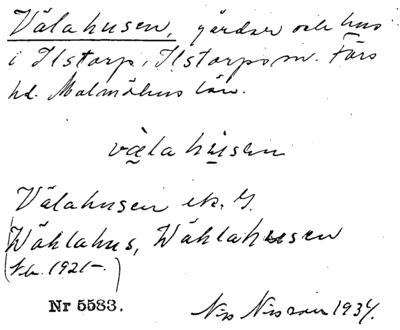 Välahusen, gårdar och hus
i Ilstorp, Ilstorps sn. Färs
hd. Malmöhus län.
væ̀la hu̱sen
Välahusen ek. G.
Wähl​ahus, Wählahusen
(kb. 1921-.)
Nr 5583. Nils Nilsson 1934.